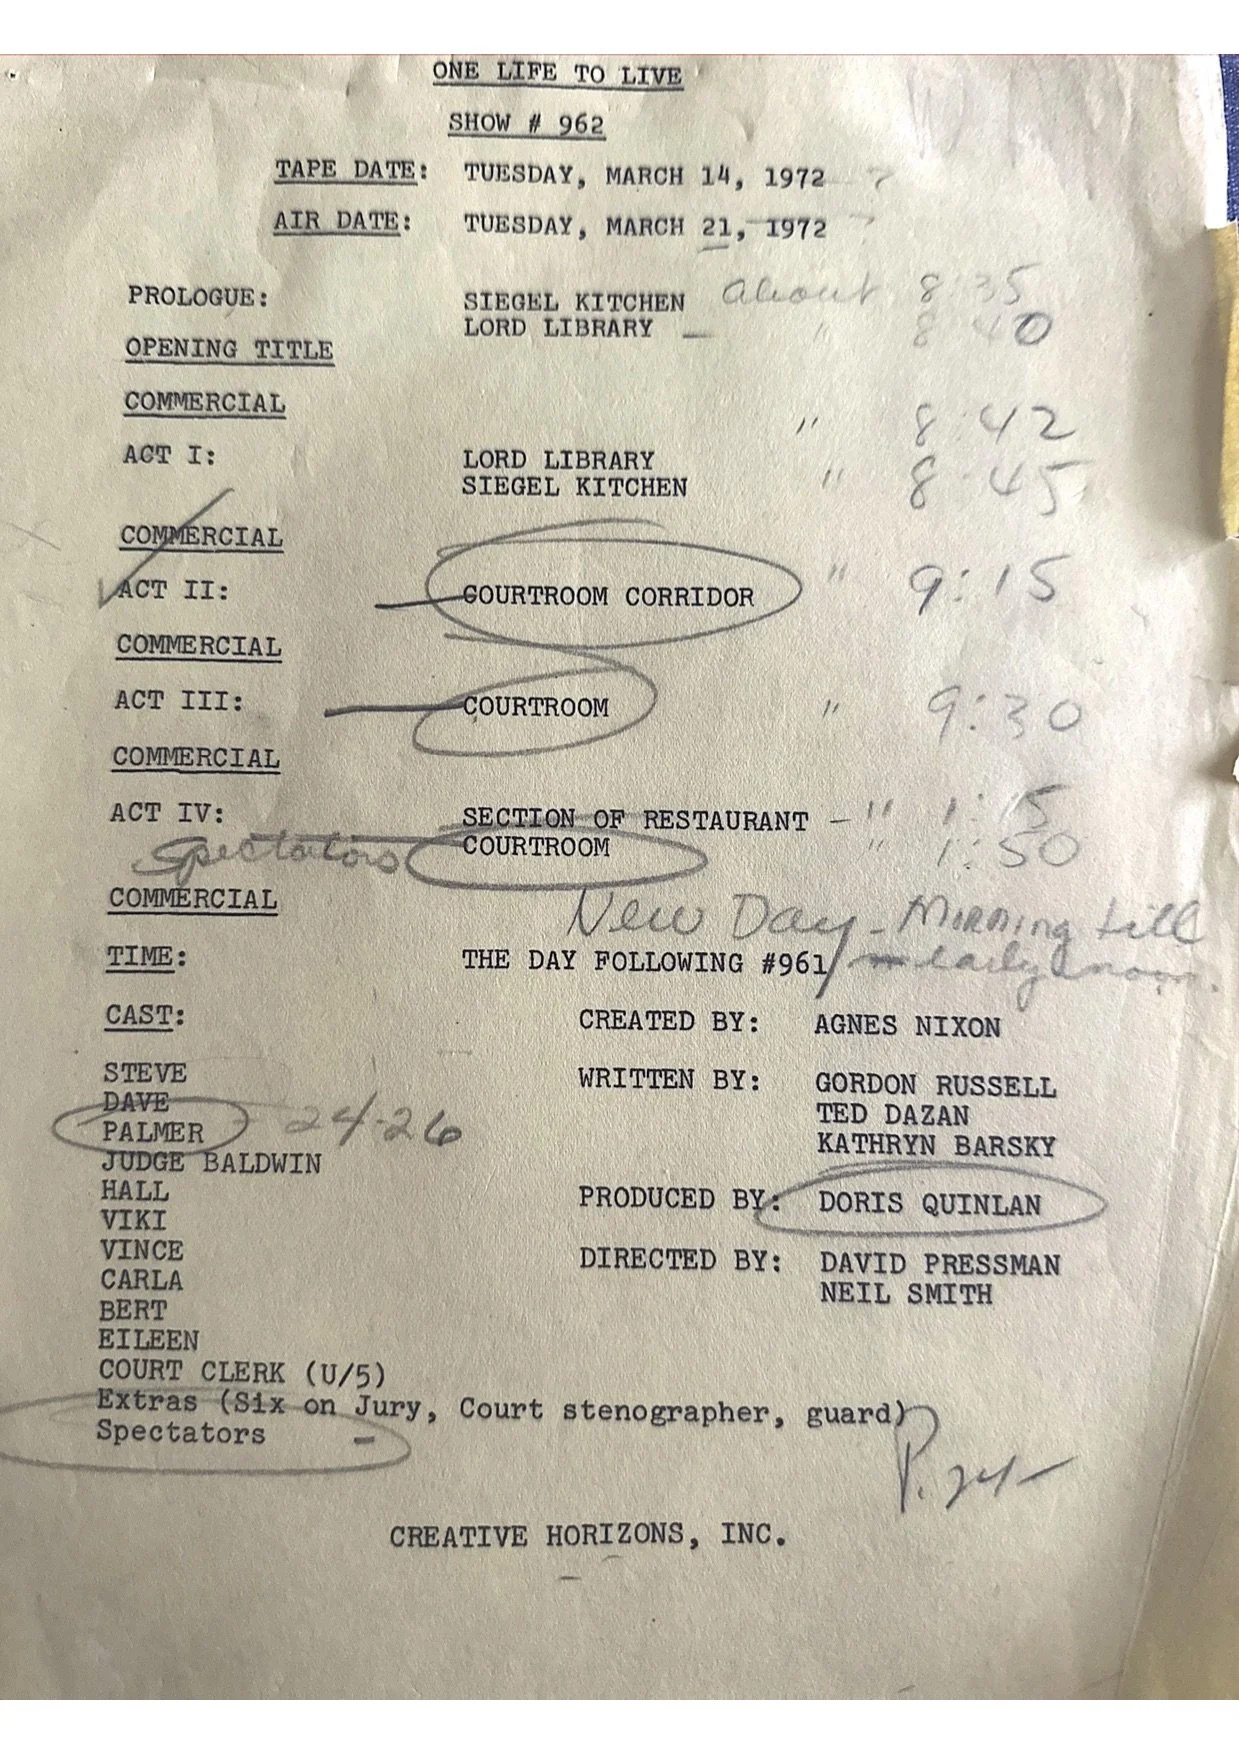 ONE LIFE TO LIVE
SHOW # 962
TAPE DATE: TUESDAY, MARCH 14, 1972 ?
AIR DATE: TUESDAY, MARCH 21, 1972 ?
PROLOGUE: SIEGEL KITCHEN About 8:35
LORD LIBRARY — " 8:40
OPENING TITLE
COMMERCIAL
" 8:42
ACT I: LORD LIBRARY
SIEGEL KITCHEN " 8:45
COMMERCIAL
ACT II: COURTROOM CORRIDOR " 9:15
COMMERCIAL
ACT III: COURTROOM " 9:30
COMMERCIAL
ACT IV: SECTION OF RESTAURANT — " 1:15
Spectators COURTROOM " 1:50
COMMERCIAL
New Day - Morning till
TIME: THE DAY FOLLOWING #961/ early noon.
CAST: CREATED BY: AGNES NIXON
STEVE WRITTEN BY: GORDON RUSSELL
DAVE TED DAZAN
PALMER - 24-26 KATHRYN BARSKY
JUDGE BALDWIN
HALL PRODUCED BY: DORIS QUINLAN
VIKI
VINCE DIRECTED BY: DAVID PRESSMAN
CARLA NEIL SMITH
BERT
EILEEN
COURT CLERK (U/5)
Extras (Six on Jury, Court stenographer, guard)
Spectators -
P. 24-
CREATIVE HORIZONS, INC.